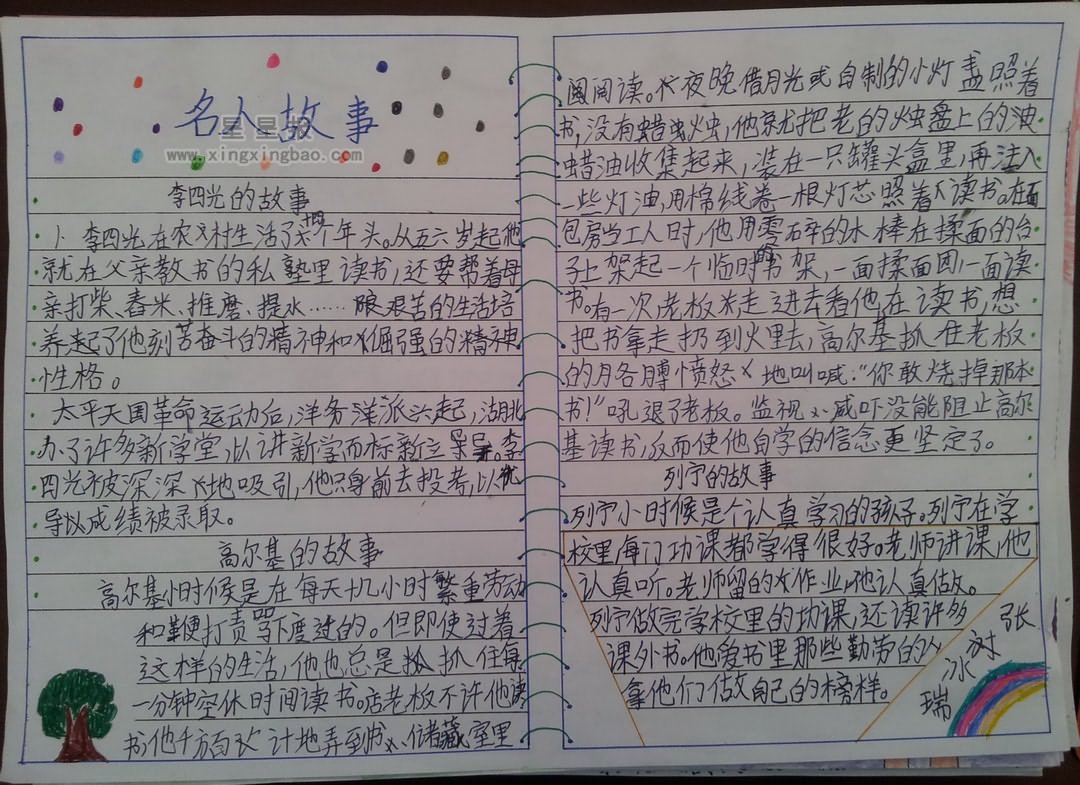 名人故事
星星报
www.xingxingbao.com
李四光的故事
1、李四光在农村生活了十四个年头。从五六岁起他
就在父亲教书的私塾里读书,还要帮着母
亲打柴、舂米、推磨、提水……艰苦的生活培
养起了他刻苦奋斗的精神和倔强的精神
性格。
太平天国革命运动后,洋务派兴起,湖北
办了许多新学堂,以讲新学而标新立异。李
四光被深深地吸引,他只身前去投考,以优
异成绩被录取。
高尔基的故事
高尔基小时候是在每天十几小时繁重劳动
和鞭打责骂下度过的。但即使过着
这样的生活,他也总是抓住每
一分钟空休时间读书。店老板不许他读
书他千方百计地弄到书、储藏室里
阅读。夜晚借月光或自制的小灯盖照着
书,没有蜡烛,他就把老的烛盘上的油
蜡油收集起来,装在一只罐头盒里,再注入
一些灯油,用棉线卷一根灯芯照着读书。在面
包房当工人时,他用零碎的木棒在揉面的台
子上架起一个临时书架,一面揉面团,一面读
书。有一次,老板走进去看他在读书,想
把书拿走扔到火里去,高尔基抓住老板
的胳膊愤怒地叫喊:“你敢烧掉那本
书!”吼退了老板。监视、威吓没能阻止高尔
基读书,反而使他自学的信念更坚定了。
列宁的故事
列宁小时候是个认真学习的孩子。列宁在学
校里,每门功课都学得很好。老师讲课,他
认真听。老师留的作业,他认真做。
列宁做完学校里的功课,还读许多
课外书。他爱书里那些勤劳的人
拿他们做自己的榜样。
张
树
冰
瑞